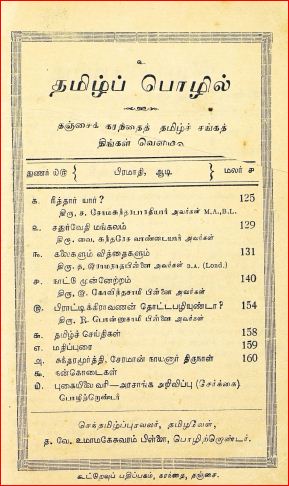 உ
தமிழ்ப் பொழில்
தஞ்சைக் கரந்தைத் தமிழ்ச் சங்கத்
திங்கள் வெளியீடு
துணர் ௰௫ பிரமாதி, ஆடி மலர் ௪
க. ரித்தார் யார்? 125
திரு, ச. சோமசுந்தரபாரதியார் அவர்கள் M.A., B.L.
உ. சதுர்வேதி மங்கலம் 129
திரு, வை. சுந்தரேச வாண்டையார் அவர்கள்
௩. கலைகளும் வித்தைகளும் 131
திரு, த, இராமநாதபிள்ளை அவர்கள் B.A. (Lond.)
௪. நாட்டு முன்னேற்றம் 140
திரு, இ. கோவிந்தசாமி பிள்ளை அவர்கள்
௫. பிராட்டிக்கிராவணன் தொட்டபழியுண்டா? 154
திரு, R. பொன்னுசாமி பிள்ளை அவர்கள்
௬. தமிழ்ச் செய்திகள் 158
எ. மதிப்புரை 159
அ. சுந்தரமூர்த்தி, சேரமான் நாயனார் திருநாள் 160
௯. நன்கொடைகள்
௰. புகையிலைவரி—அரசாங்க அறிவிப்பு (சேர்க்கை)
பொழிற்றொண்டர்
செந்தமிழ்ப்புரவலர், தமிழவேள்,
த. வே. உமாமகேசுவரம் பிள்ளை, பொழிற்றொண்டர்.
கூட்றவுப் பதிப்பகம், கரந்தை, தஞ்சை.